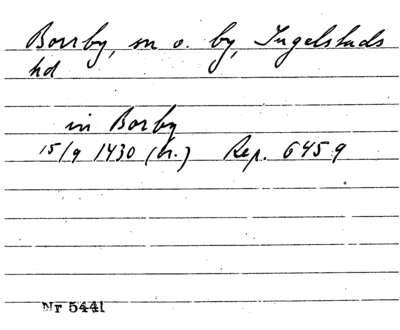 Borrby, sn o. by, Ingelstads
hd
in Borby
15/9 1430 (tr.) Rep. 6459
Nr 5441